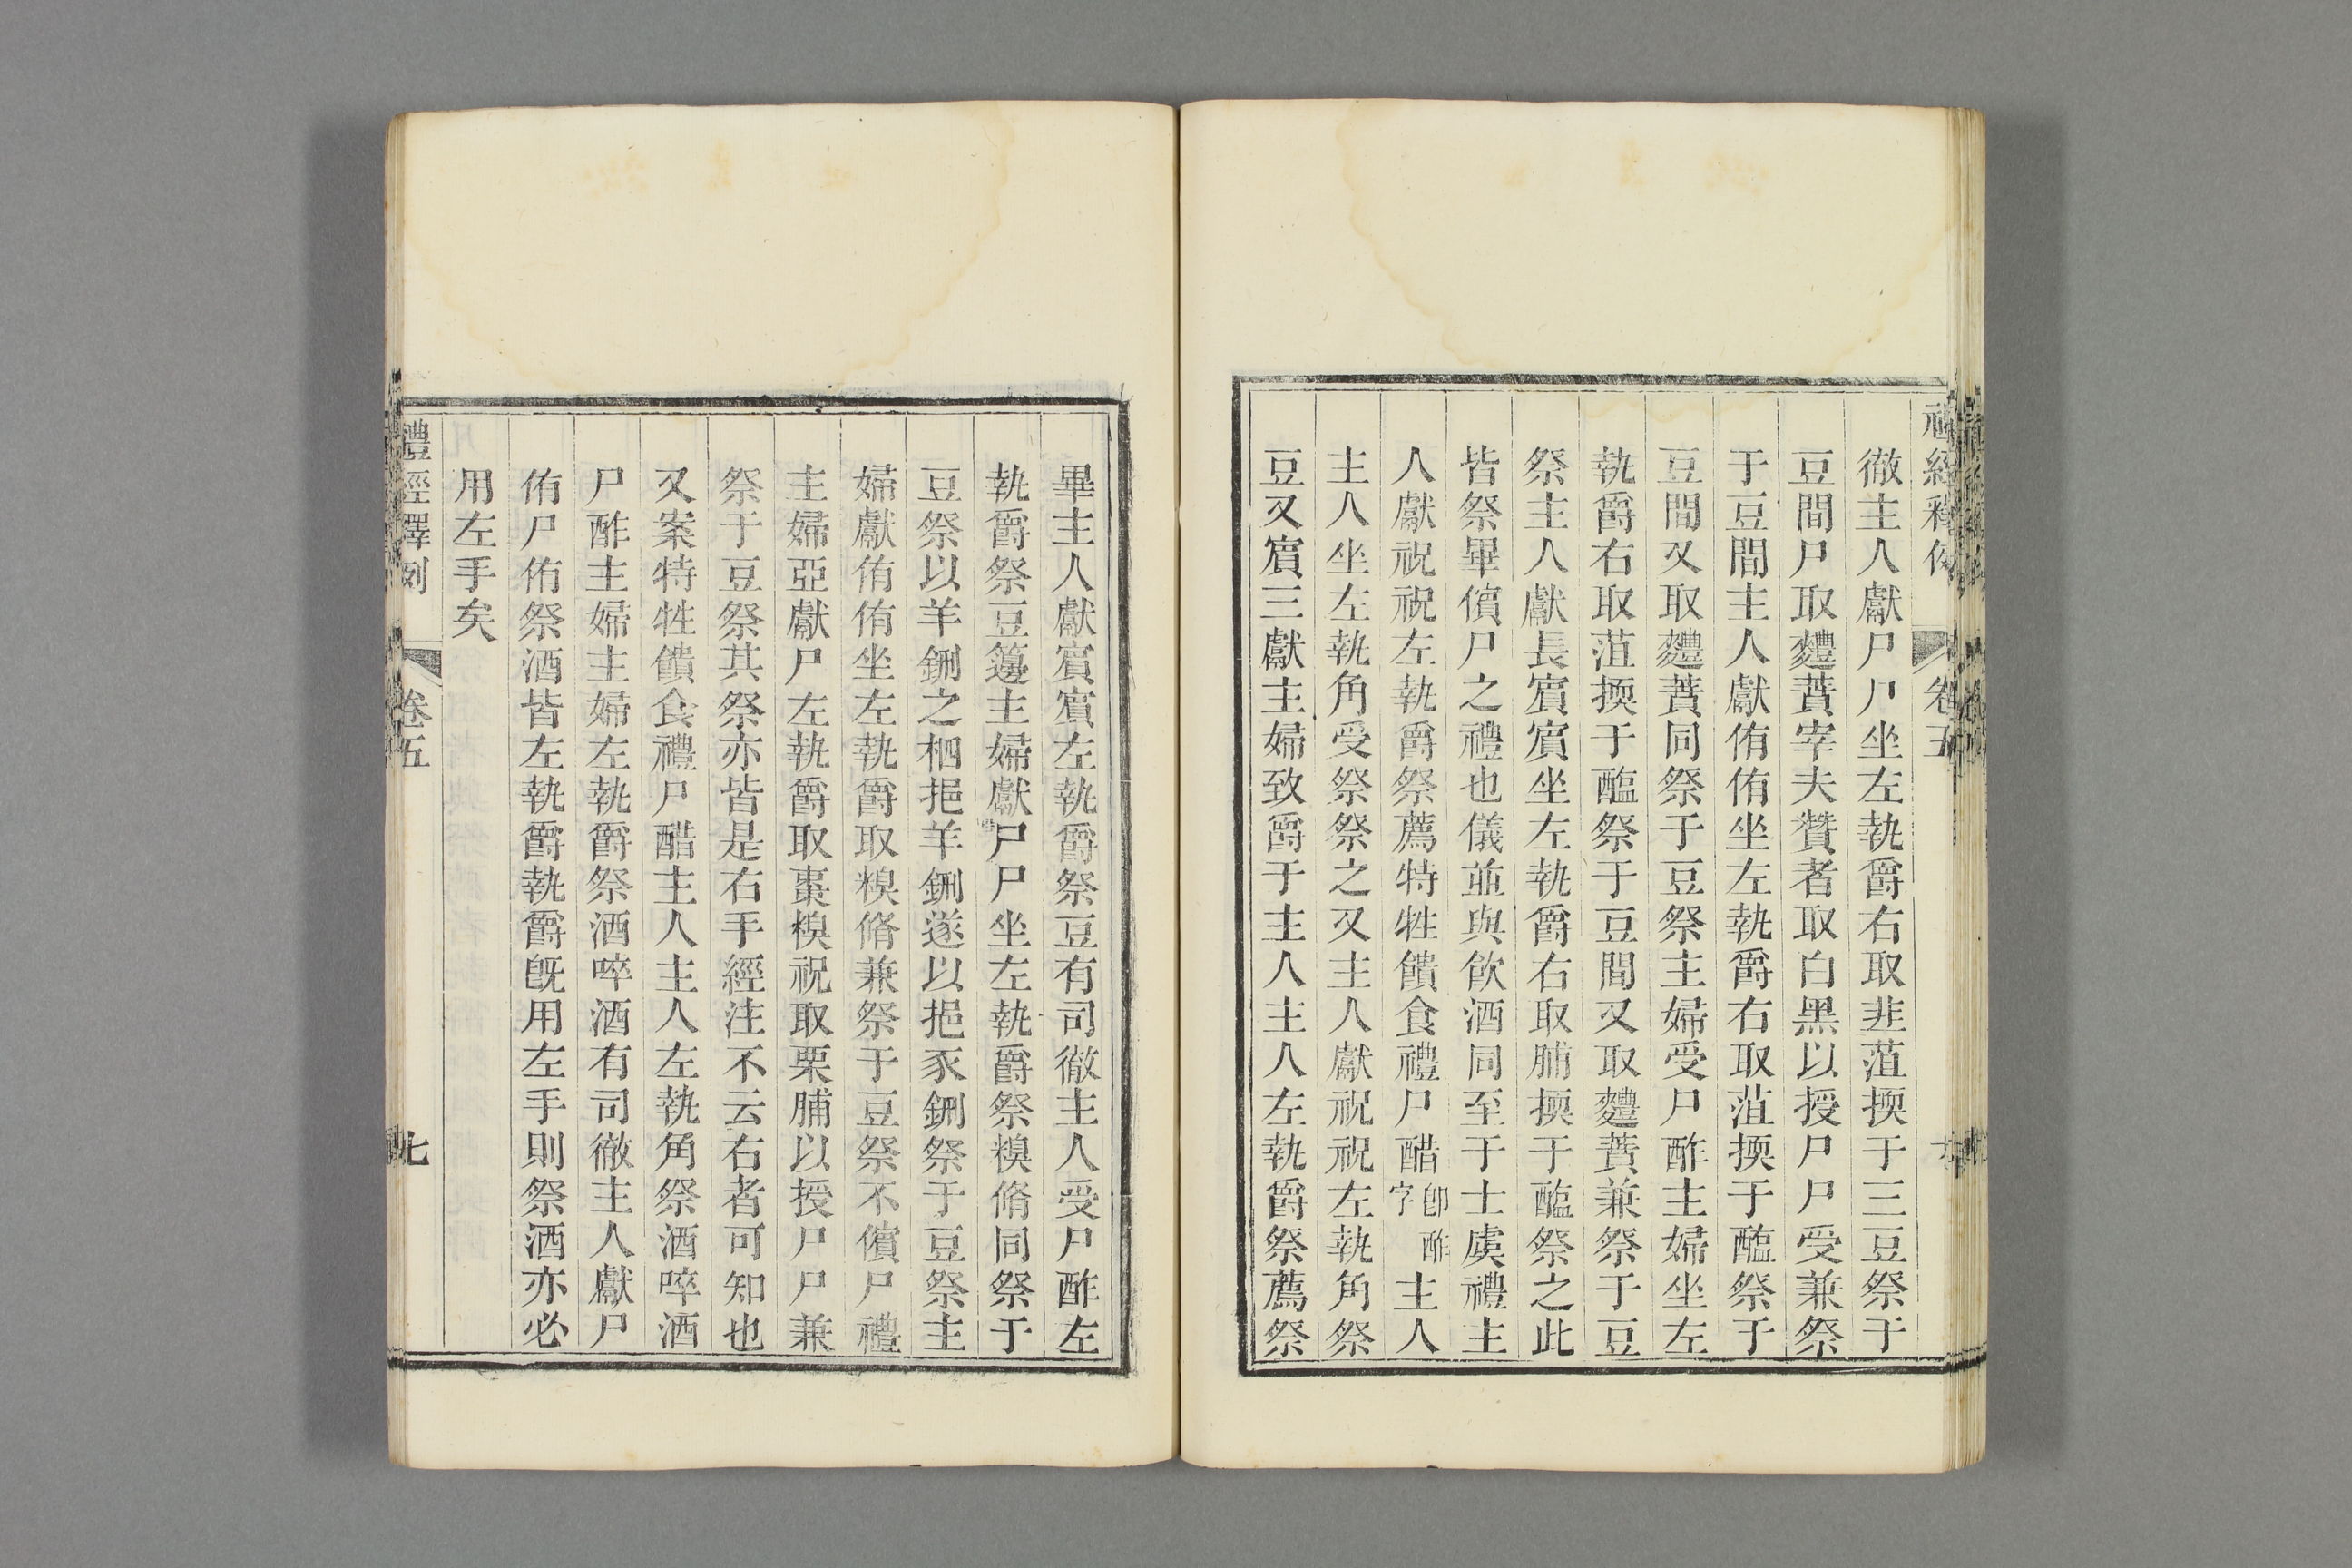 徹主人獻尸尸坐左執爵右取韭菹㨎于三豆祭于
豆間尸取麷蕡宰夫贊者取白黑以授尸尸受兼祭
于豆間主人獻侑侑坐左執爵右取菹㨎于醢祭于
豆間又取麷蕡同祭于豆祭主婦受尸酢主婦坐左
執爵右取菹㨎于醢祭于豆間又取麷蕡兼祭于豆
祭主人獻長賓賓坐左執爵右取脯㨎于醢祭之此
皆祭畢儐尸之禮也儀並與飲酒同至于士虞禮主
人獻祝祝左執爵祭薦特牲饋食禮尸醋卽酢字主人
主人坐左執角受祭祭之又主人獻祝祝左執角祭
豆又賓三獻主婦致爵于主人主人左執爵祭薦祭
畢主人獻賓賓左執爵祭豆有司徹主人受尸酢左
執爵祭豆籩主婦獻尸尸坐左執爵祭糗脩同祭于
豆祭以羊鉶之柶挹羊鉶遂以挹豕鉶祭于豆祭主
婦獻侑侑坐左執爵取糗脩兼祭于豆祭不儐尸禮
主婦亞獻尸左執爵取棗糗祝取栗脯以授尸尸兼
祭于豆祭其祭亦皆是右手經注不云右者可知也
又案特牲饋食禮尸醋主人主人左執角祭酒啐酒
尸酢主婦主婦左執爵祭酒啐酒有司徹主人獻尸
侑尸侑祭酒皆左執爵執爵旣用左手則祭酒亦必
用左手矣
禮經釋例 卷五 七